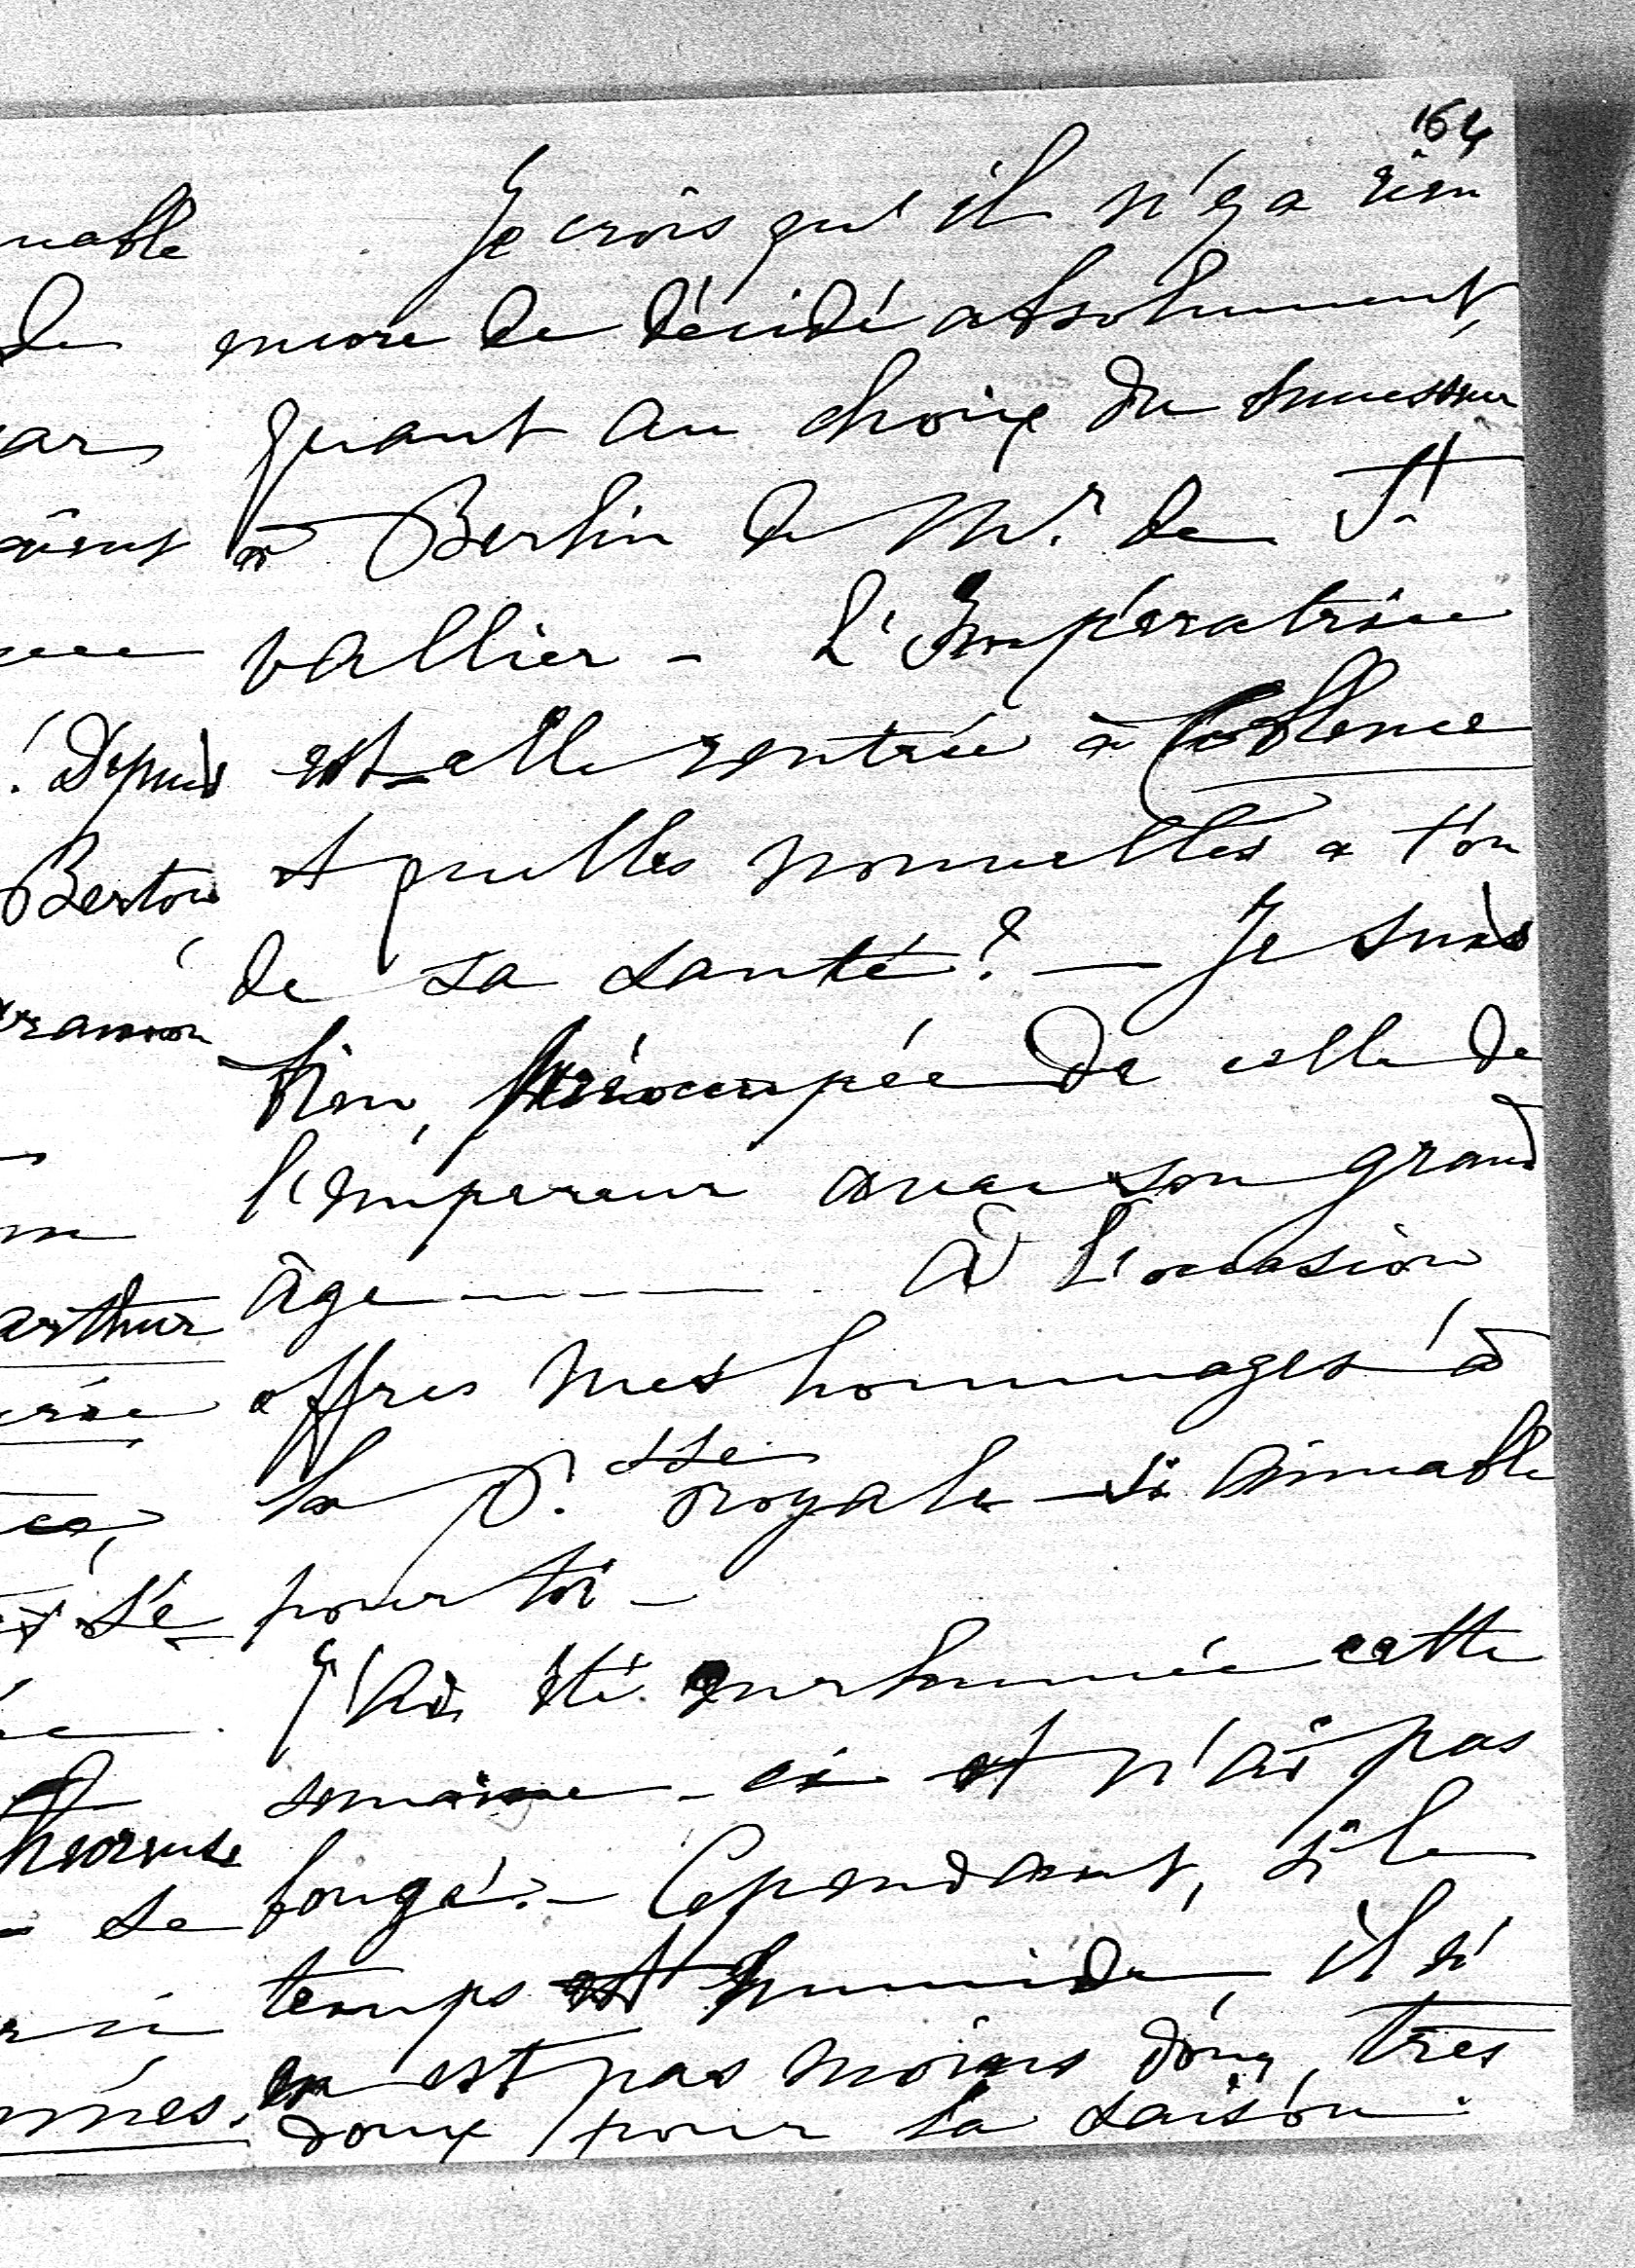 164
Je crois qu'il n'y a rien
encore de décidé absolument,
quant au choix du successeur
à Berlin de Mr. de St
Vallier - L'Impératrice
est-elle rentrée à Coblence
et quelles nouvelles a t'on
de sa santé? - Je suis
bien, préoccupée de celle de
l'empereur avec son grand
âge - - - - . à l'occasion
offres mes hommages à
la P.sse royale si aimable
pour toi -
J'ai été enrhumée cette
semaine - ci et n'ai pas
bougé. - Cependant, si le
temps est humide, il n'
en est pas moins doux, très
doux pour la saison.
nable
de
ar
aient
! Depuis
Bertou
arthur
se